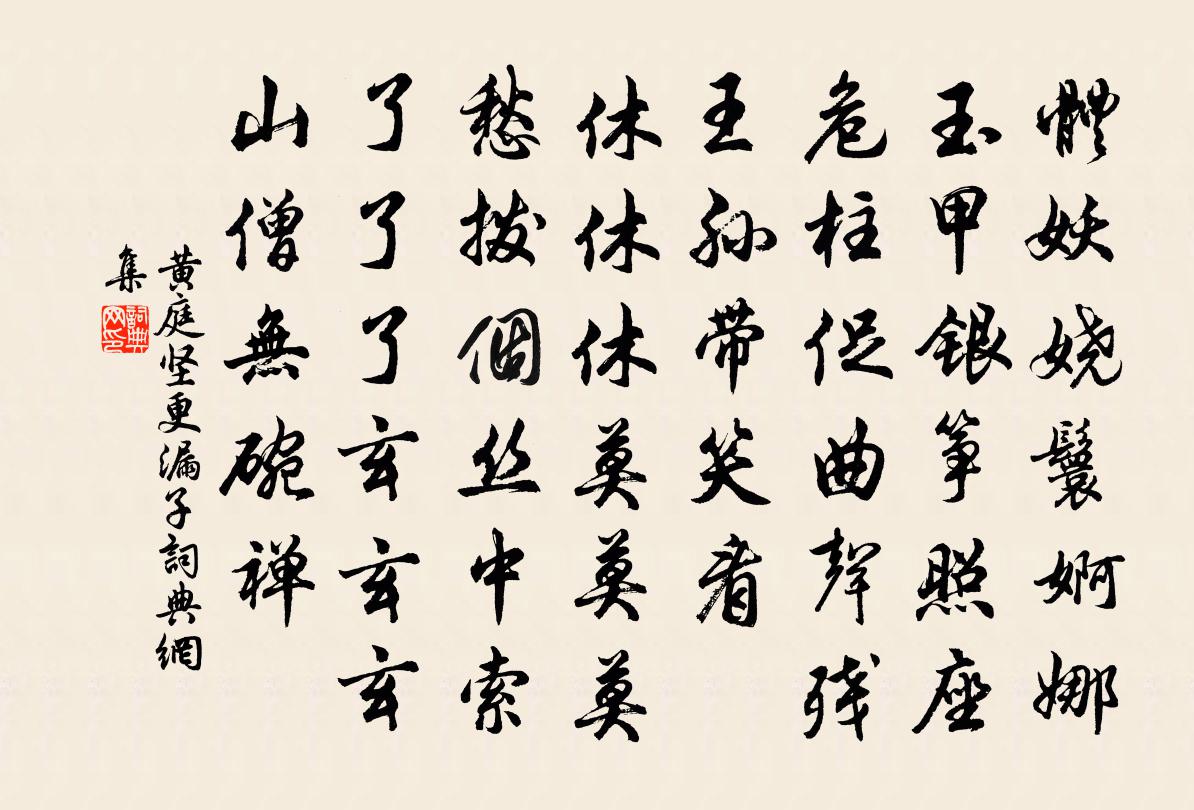 體妖娆鬟婀娜
玉甲銀筝照座
危柱促曲聲残
王孙带笑看
休休休莫莫莫
愁拨個丝中索
了了了玄玄玄
山僧無碗禅
黄庭坚更漏子詞典網
集
詞典网印